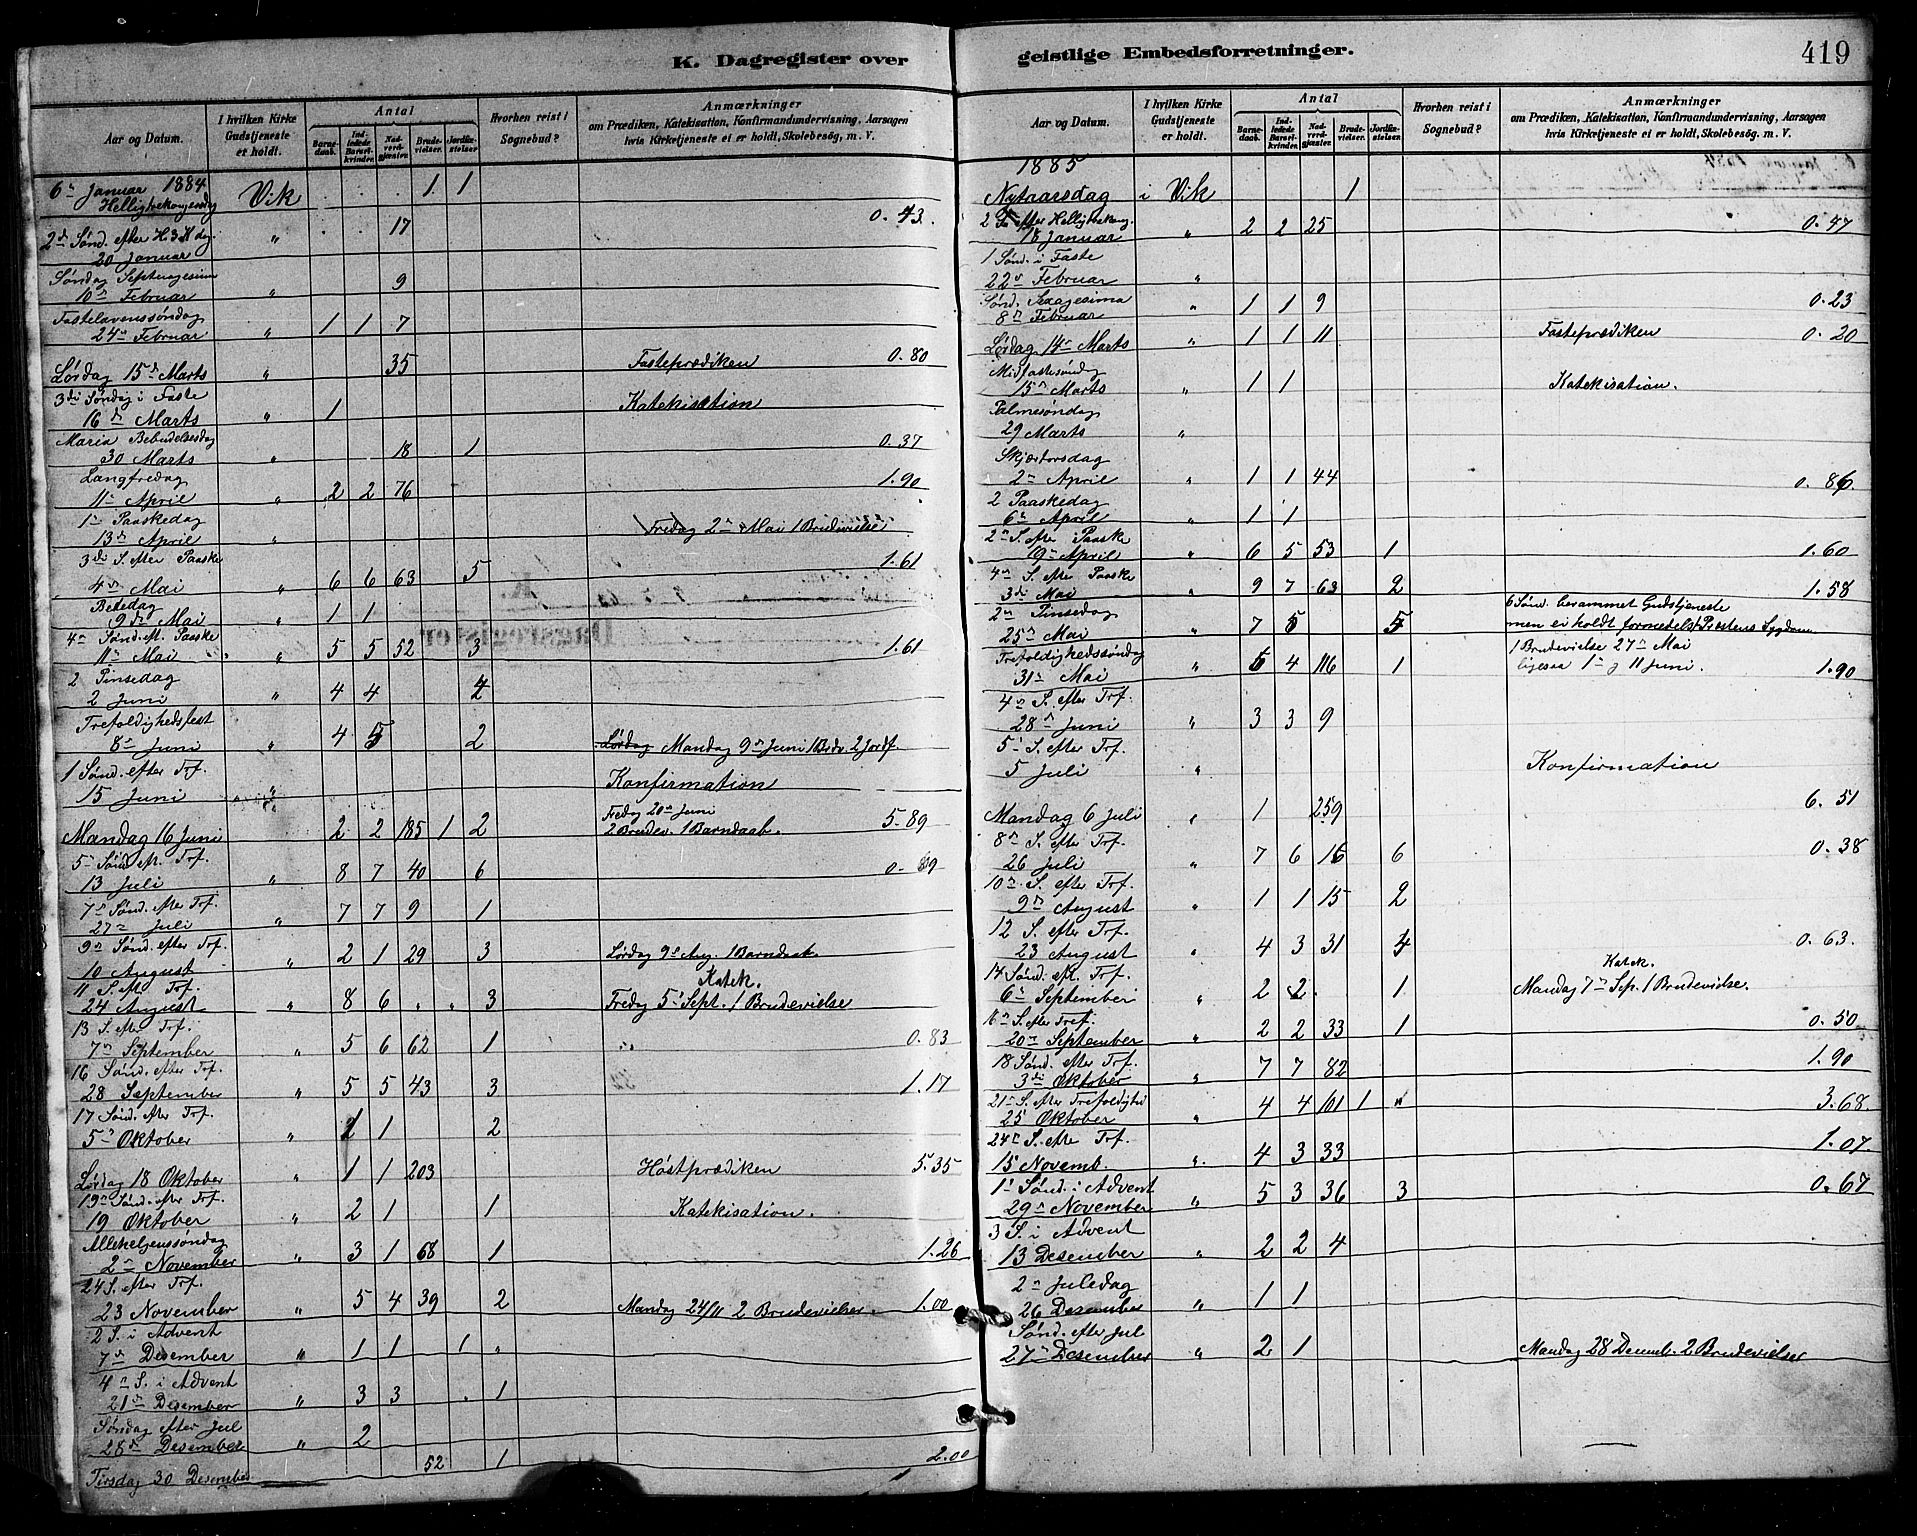 K. Dagregister over
Aar og Datum.
I hvilken Kirke Gudstjeneste er holdt.
Antal
Barnedaab.
Indledede Barselkvinder.
Nadverdgjæster.
Brudevielser.
Jordfæstelser.
Hvorhen reist i Sognebud?
Anmærkninger
om Prædiken, Katekisation, Konfirmandundervisning, Aarsagen
hvis Kirketjeneste ei er holdt, Skolebesøg, m. V.
6te Januar 1884 Vik 1 1
Helligtrekongersdag
2den Sønd. efter H. 3 K dag. " 17 0.43.
20 Januar
Søndag Septuagesima
10de Februar " 9
Fastelavenssøndag
24de Februar " 1 1 7
Lørdag 15de Marts " 35 Fasteprædiken 0.80
3die Søndag i Faste
16de Marts " 1 Katekisation
Maria Bebudelsesdag
30 Marts " 18 1 0.37
Langfredag
11te April " 2 2 76 1.90
1ste Paaskedag
13de April " Fredag 2den Mai 1 Brudevielse
3die S. efter Paaske
4de Mai " 6 6 63 5 1.61
Bededag
9de Mai " 1 1
4de Sønd. eft. Paaske
11te Mai " 5 5 52 3 1.61
2 Pinsedag
2 Juni " 4 4 4
Trefoldighedsfest
8de Juni " 4 5 2 Lørdag Mandag 9de Juni 1 Brdv. 2 Jordf.
1 Sønd. efter Trf.
15 Juni " Konfirmation
Fredag 20de Juni
Mandag 16 Juni " 2 2 185 1 2 2 Brudev. 1 Barndaab. 5.89
5te Sønd. eft. Trf.
13 Juli " 8 7 40 6 0.89
7de Sønd. efter Trf.
27de Juli " 7 7 9 1
9de Sønd. efter Trf.
10 August " 2 1 29 3 Lørdag 9de Aug. 1 Barndaab.
11 S. efter Trf. Katek.
24 August " 8 6 " " 3 Fredag 5te Sept. 1 Brudevielse
13 S. efter Trf.
7de September " 5 6 62 1 0.83
16 Sønd. efter Trf.
28 September " 5 5 43 3 1.17
17 Sønd. efter Trf.
5te Oktober " 1 1 2
Lørdag 18 Oktober " 1 1 203 Høstprædiken 5.35
19de Sønd. efter Trf.
19 Oktober " 2 1 1 Katekisation.
Allehelgenssøndag
2den November " 3 1 68 1 1.26
24 S. efter Trf.
23 November " 5 4 39 2 Mandag 24/11 2 Brudevielser. 1.00
2 S. i Advent
7de Desember " 1 1 1 "
4de S. i Advent
21de Desember " 3 3 1
Søndag efter Jul
28de Desember " 2
Tirsdag 30 Desember 52 1 2.00
geistlige Embedsforretninger.
419
Aar og Datum.
I hvilken Kirke Gudstjeneste er holdt.
Antal
Barnedaab.
Indledede Barselkvinder.
Nadverdgjæster.
Brudevielser.
Jordfæstelser.
Hvorhen reist i Sognebud?
Anmærkninger
om Prædiken, Katekisation, Konfirmandundervisning, Aarsagen
hvis Kirketjeneste ei er holdt, Skolebesøg m. V.
1885
Nytaarsdag i Vik 1
2 S. efter Helligtrekong.
18 Januar " 2 2 25 0.47
1 Sønd. i Faste
22de Februar "
Sønd. Sexagesima
8de Februar " 1 1 9 0.23
Lørdag 14de Marts " 1 1 11 Fasteprædiken 0.20
Midfastesøndag
15de Marts " 1 1 Katekisation.
Palmesøndag
29 Marts "
Skjærtorsdag
2den April " 1 1 44 0.86.
2 Paaskedag
6te April " 1 1
2den S. efter Paaske
19de April " 6 5 53 1 1.60
4de S. efter Paaske
3die Mai " 9 7 63 2 1.58
2den Pinsedag 6 Sønd. berammet Gudstjeneste
25de Mai " 7 5 5 men ei holdt formedelst Prestens Sygdom
Trefoldighedssøndag 1 Brudevielse 27de Mai
31te Mai " 5 4 116 1 ligesaa 1ste og 11 Juni. 1.90
4de S. efter Trf.
28de Juni " 3 3 9
5te S. efter Trf.
5 Juli " Konfirmation
Mandag 6 Juli " 1 259 6.51
8de S. efter Trf.
26 Juli " 7 6 16 6 0.38
10de S. efter Trf.
9de August " 1 1 15 2
12 S. efter Trf.
23 August " 4 3 31 4 0.63.
14 Sønd. eft. Trf. Katek.
6te September " 2 2 1 Mandag 7de Sep. 1 Brudevielse.
16de S. efter Tref.
20de September " 2 2 33 1 0.50
18 Sønd. efter Trf.
3die Oktober " 7 7 82 1.90
21de S. efter Trefoldighed
25 Oktober " 4 4 101 1 " 3.68.
24de S. efter Trf.
15 Novemb. " 4 3 33 1.07.
1ste Sønd. i Advent
29de November " 5 3 36 3 0.67
3 S. i Advent
13 Desember " 2 2 4
2den Juledag
26 Desember " 1 1
Sønd. efter Jul
27de Desember " 2 1 Mandag 28 Decemb. 2 Brudevielser